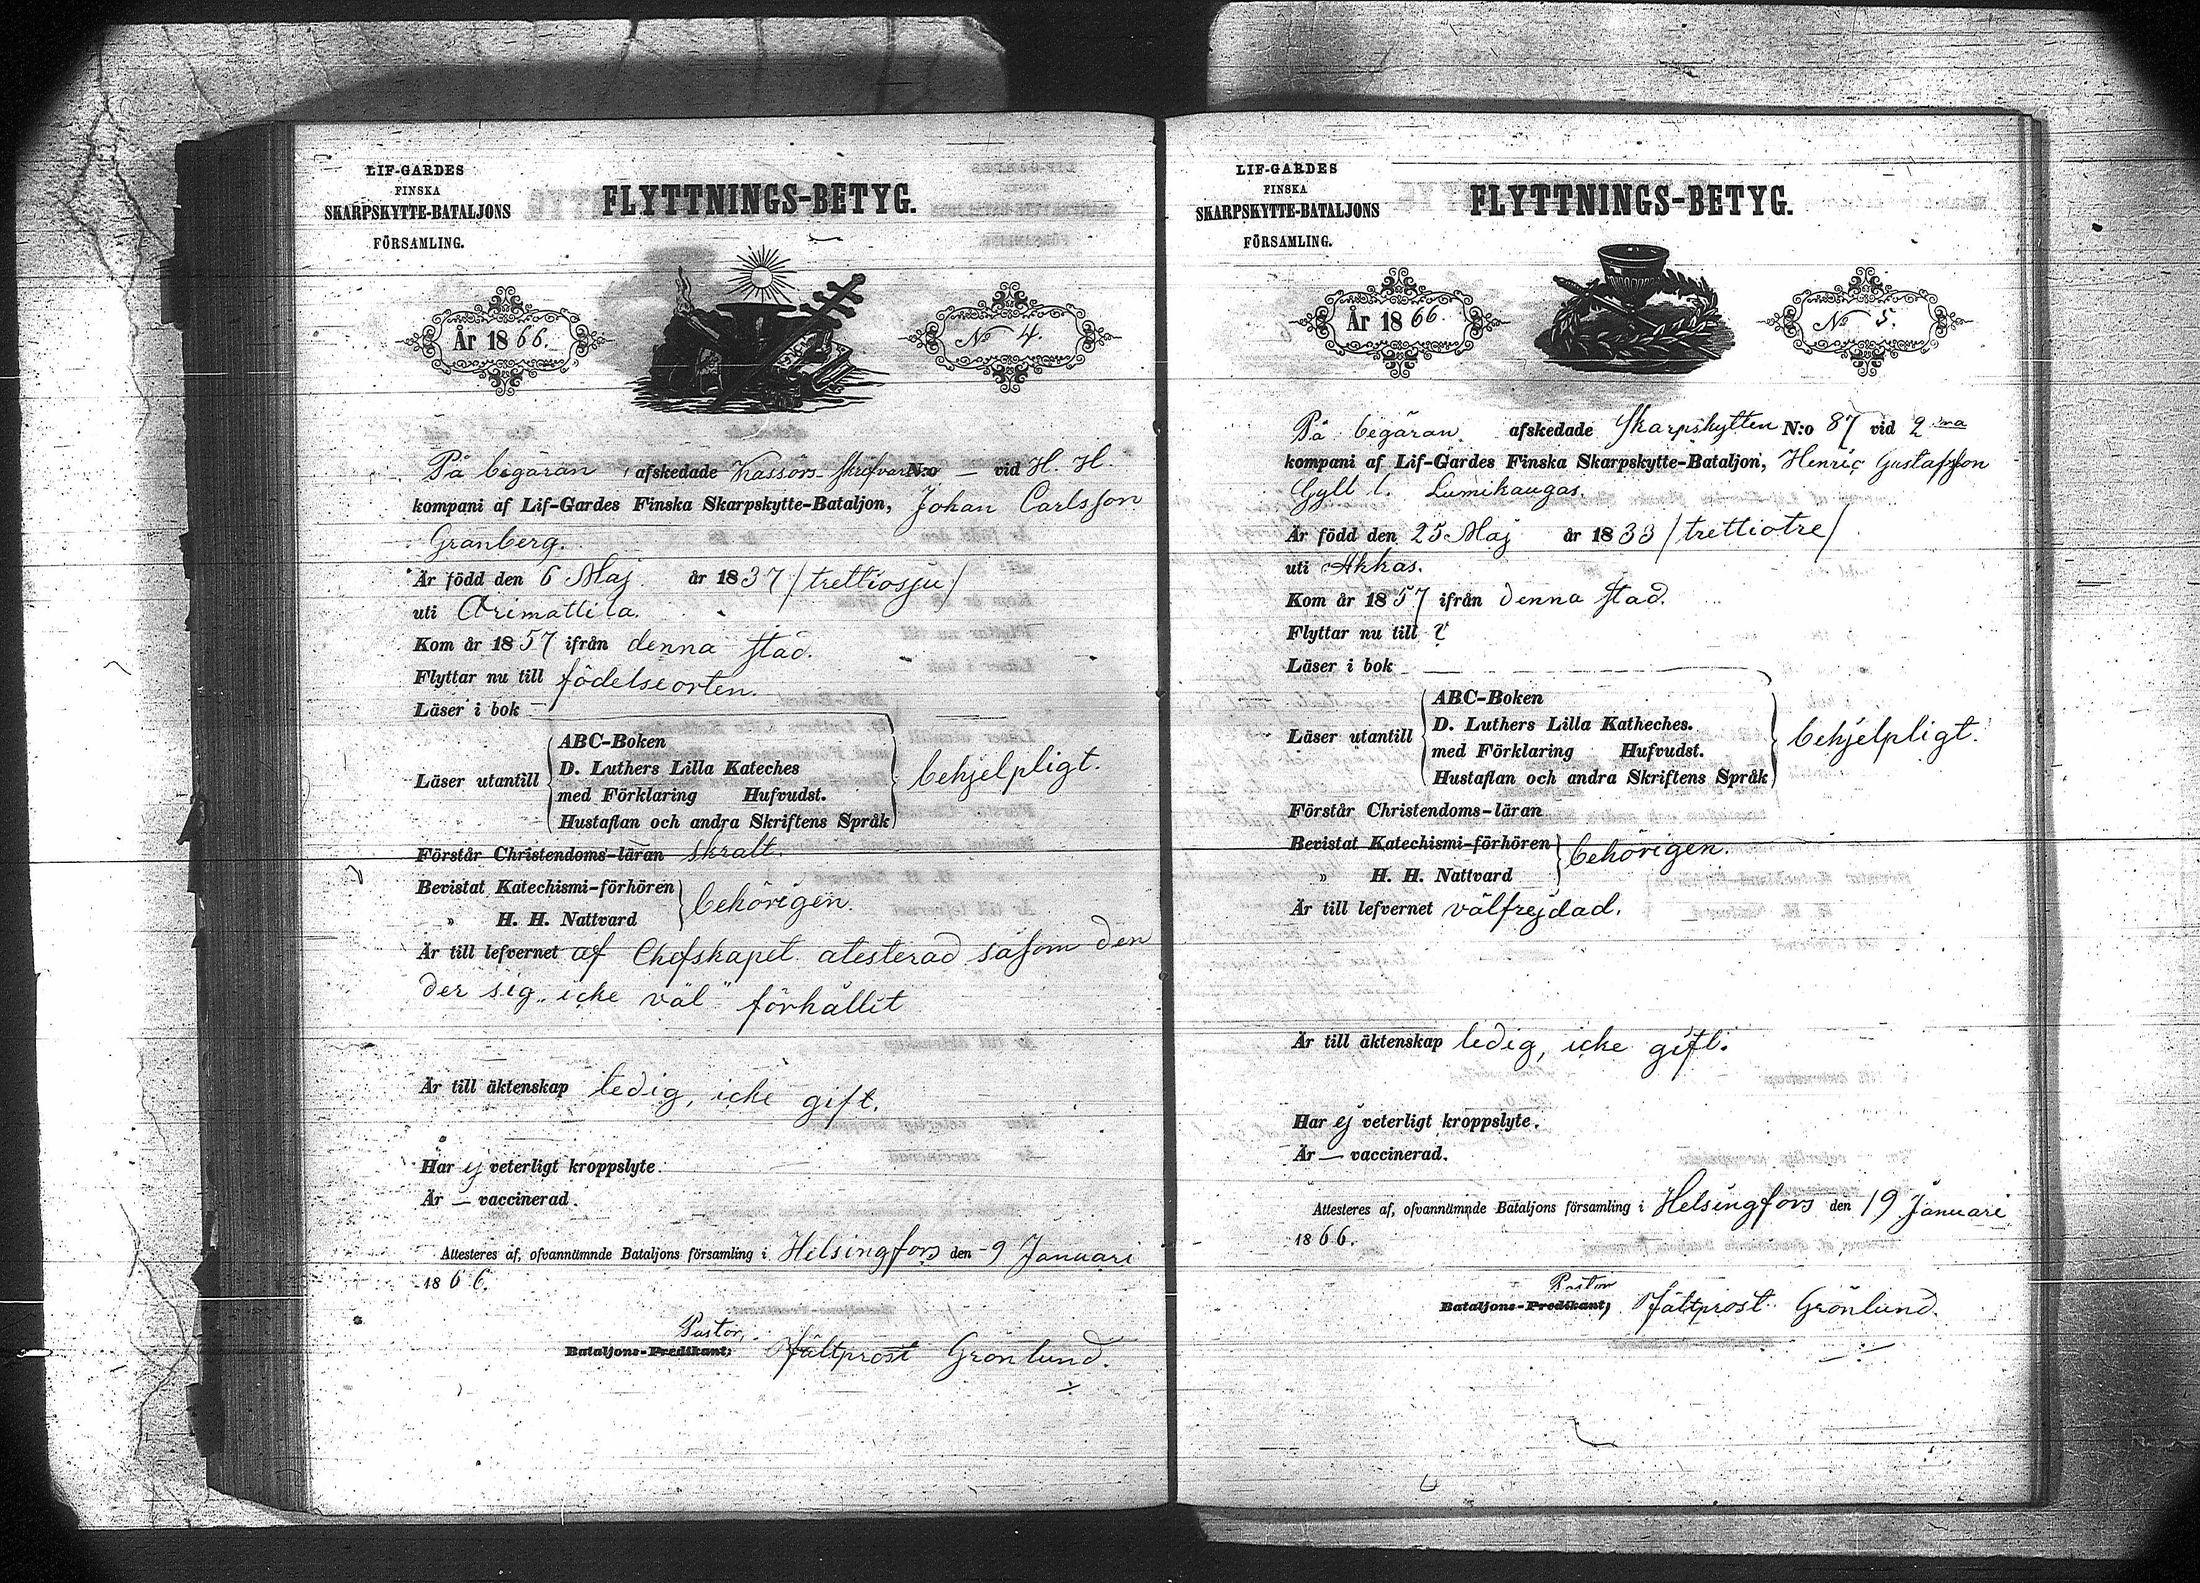 LIF-GARDES
FINSKA
SKARPSKYTTE-BATALJONS
FÖRSAMLING.
FLYTTNINGS-BETYG.
År 1866.
No 4.
På begäran afskedade Kassörs-skrifvare N:o — vid H. H.
kompani af Lif-Gardes Finska Skarpskytte-Bataljon, Johan Carlsson
Granberg.
Är född den 6 Maj år 1837 /trettiosju/
uti Orimattila.
Kom år 1857 ifrån denna stad.
Flyttar nu till födelseorten.
Läser i bok —
Läser utantill
ABC-Boken
D. Luthers Lilla Kateches
med Förklaring Hufvudst.
Hustaflan och andra Skriftens Språk
behjelpligt.
Förstår Christendoms-läran skralt.
Bevistat Katechismi-förhören
" H. H. Nattvard
behörigen.
Är till lefvernet af Chefskapet atesterad såsom den
der sig „icke väl" förhållit
Är till äktenskap ledig, icke gift.
Har ej veterligt kroppslyte.
Är — vaccinerad.
Attesteres af, ofvannämnde Bataljons församling i Helsingfors den 9 Januari
1866.
Pastor,
Bataljons-Predikant, Fältprost Grönlund.
LIF-GARDES
FINSKA
SKARPSKYTTE-BATALJONS
FÖRSAMLING.
FLYTTNINGS-BETYG.
År 1866.
No 5.
På begäran afskedade Skarpskytten N:o 87 vid 2 ma
kompani af Lif-Gardes Finska Skarpskytte-Bataljon, Henric Gustafsson
Gyll l. Lumikangas.
Är född den 25 Maj år 1833 /trettiotre/
uti Akkas.
Kom år 1857 ifrån denna stad.
Flyttar nu till ?
Läser i bok
Läser utantill
ABC-Boken
D. Luthers Lilla Katheches.
med Förklaring Hufvudst.
Hustaflan och andra Skriftens Språk
behjelpligt.
Förstår Christendoms-läran
Bevistat Katechismi-förhören
" H. H. Nattvard
behörigen.
Är till lefvernet välfrejdad.
Är till äktenskap ledig, icke gift.
Har ej veterligt kroppslyte.
Är — vaccinerad.
Attesteres af, ofvannämnde Bataljons församling i Helsingfors den 19 Januari
1866.
Pastor
Bataljons-Predikant, Fältprost Grönlund.